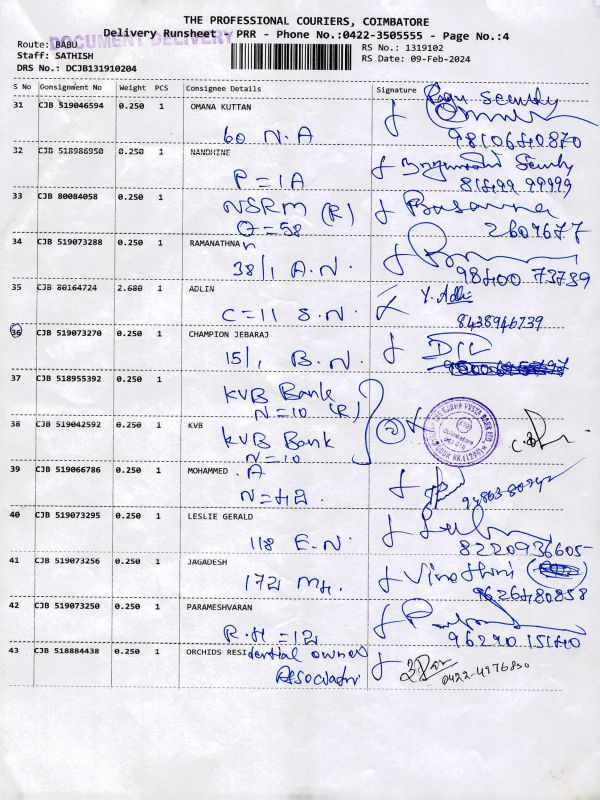 THE PROFESSIONAL COURIERS, COIMBATORE
DOCUMENT DELIVERY
Delivery Runsheet - PRR - Phone No.:0422-3505555 - Page No.:4
Route: BABU
RS No.: 1319102
Staff: SATHISH
RS Date: 09-Feb-2024
DRS No.: DCJB131910204
S No Consignment No Weight PCS Consignee Details Signature
Security
31 CJB 519046594 0.250 1 OMANA KUTTAN
60 N.A 9810640870
32 CJB 518986950 0.250 1 NANDHINE
P = 1A 81499 99999
33 CJB 80084058 0.250 1 NSRM (R) Basanna
O = 58 2604677
34 CJB 519073288 0.250 1 RAMANATHNAn
38/1 A.N. 98400 73739
35 CJB 80164724 2.680 1 ADLIN Y. Adli
C = 11 S.N. 8438946739
36 CJB 519073270 0.250 1 CHAMPION JEBARAJ
15/1, B.N.
37 CJB 518955392 0.250 1 KVB Bank
N = 10 (R)
38 CJB 519042592 0.250 1 KVB
KVB Bank 2
N = 10
39 CJB 519066786 0.250 1 MOHAMMED . A
N = 42
40 CJB 519073295 0.250 1 LESLIE GERALD
118 E.N. 8220936605
41 CJB 519073256 0.250 1 JAGADESH
172 MH. Vinothini
9626480858
42 CJB 519073250 0.250 1 PARAMESHVARAN
R.H = 12 9629015140
43 CJB 518884438 0.250 1 ORCHIDS RESIdential owner
Association 0422-4976830